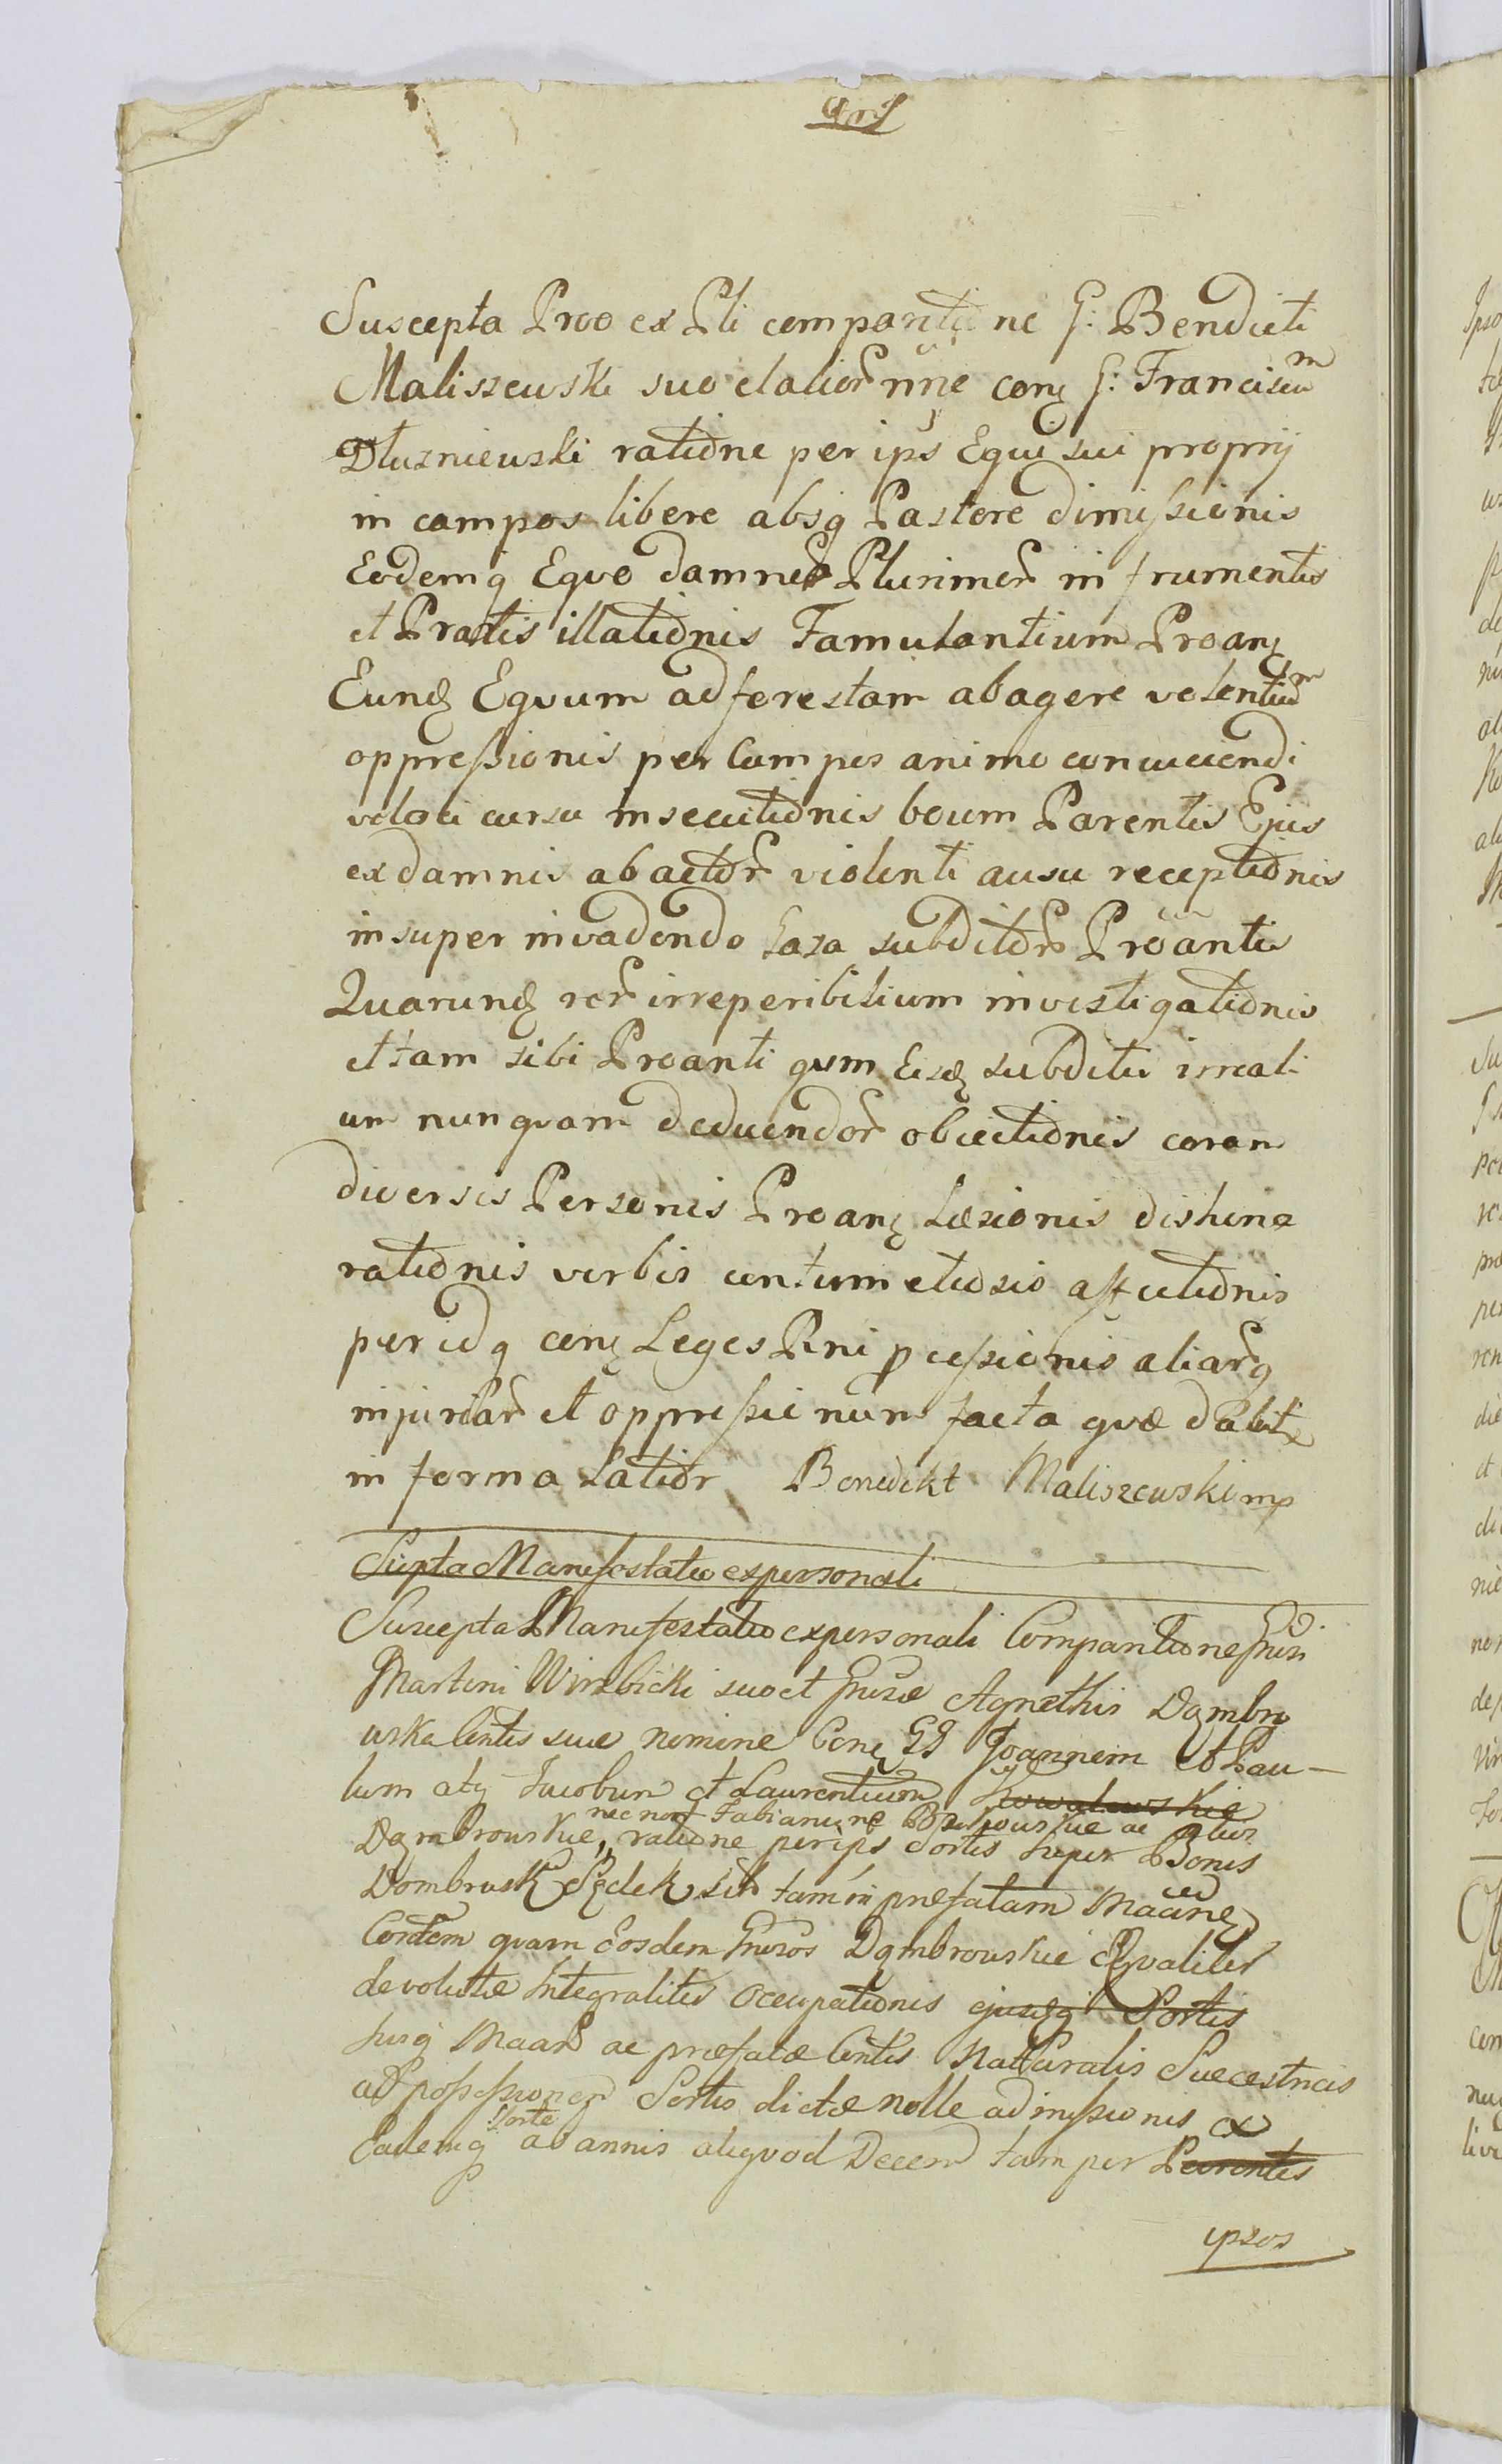 Suscepta Proo ex Pli compantione G: Bendicti
Maliszewski suo et alior nne conq G: Franciscum
Dłuzniewski ratione per ips Equi sui proprij
in campos libere absq Pastore dimissionis
Eodemq Equo damnor Plurimor in frumentis
et Pratis illationis Famulantium Proanq
Eunq Equum ad forestam abagere volentium
oppressionis per Campos animo conviciendi
veloci cursu insecutionis boum Parentis Ejus
ex damnis abactor violenti ausu receptionis
insuper invadendo Casa subditor Proantis
Quarunq rer irreperibilium investigationis
et tam sibi Proanti qvam Eisq subditis irreali
um nunqvam deducendor obiectionis coram
diversis Personis Proanq Læsionis dishono
rationis verbis contumeliosio affectionis
per idq conq Leges Rni pcessionis aliarq
injuriar et oppressionum facta qvæ dabit
in forma Latior Benedikt Maliszewski mp
Scepta Manifestatio ex personali
Suscepta Manifestatio ex personali Compantione Gnrsi
Martini Wirzbicki suo et Gnrsæ Agnethis Dąmbro
wska Contis suæ nomine Conq GG Joannem et Pau-
lum atq Jacobum et Laurentium Kowalewskie
nec non Fabianum ac alios
Dąmbrowskie, ratione per ips Sortis super Bonis
Dombrusk Sędek sit tam in præfatam Maanq
Contem qvam Eosdem Gnrsos Dąmbrowskie Æqvaliter
devolutæ Integraliter Occupationis ejusqq Sortis
suiq Maan ac præfatæ Contis Natturalis Successtricis
ad possessionem Sortis dictæ nolle admissionis ex
Sorte
Eademq ab annis aliqvod Decem tam per Parentes
ipsos